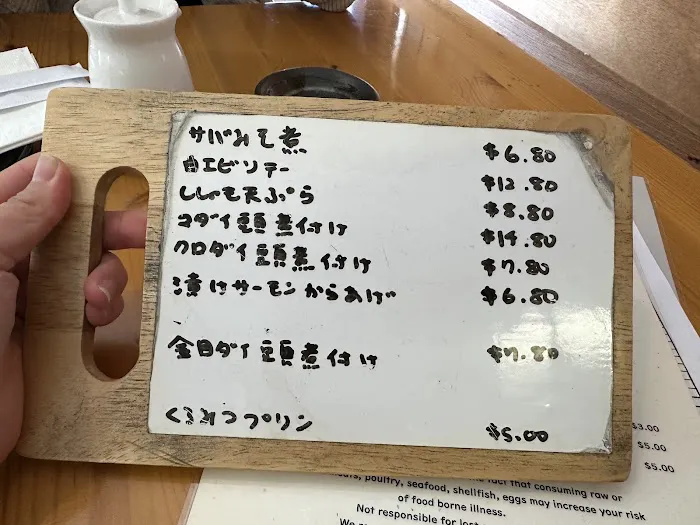 サバみそ煮 $6.80
白エビソテー $12.80
ししゃも天ぷら $8.80
コダイ頭煮付け $14.80
クロダイ頭煮付け $7.80
漬けサーモンからあげ $6.80
金目ダイ頭煮付け $7.80
くろみつプリン $5.00
$3.00
$5.00
$5.00
fact that consuming raw or
poultry, seafood, shellfish, eggs may increase your risk
of food borne illness.
Not responsible for lost